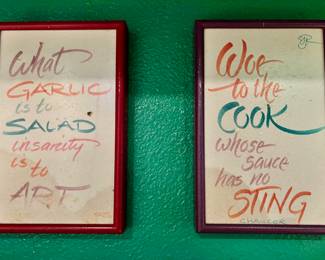 What
GARLIC
is to
SALAD
insanity
is to
ART
Woe
to the
COOK
whose
sauce
has no
STING
CHAUCER